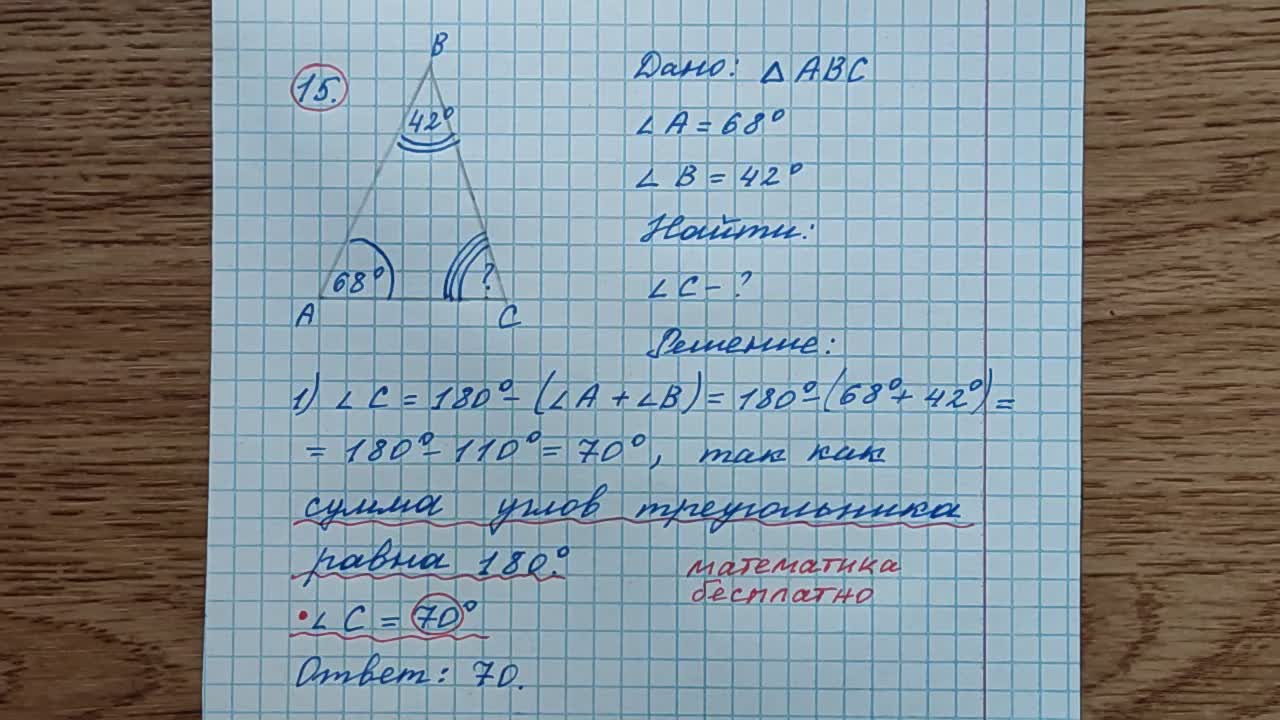 15.
B
42°
68°
?
A
C
Дано: △ ABC
∠ A = 68°
∠ B = 42°
Найти:
∠ C - ?
Решение:
1) ∠ C = 180° - (∠A + ∠B) = 180° - (68° + 42°) =
= 180° - 110° = 70°, так как
сумма углов треугольника
равна 180°.
математика
бесплатно
• ∠ C = 70°
Ответ: 70.